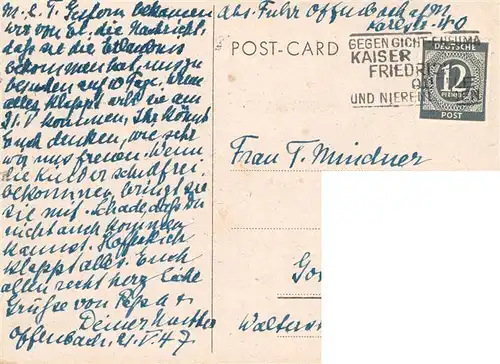 M. l. T. Gestern bekamen
wir von El. die Nachricht,
daß sie die Erlaubnis
bekommen hat, uns zu
besuchen auf 10 Tage. Wenn
alles klappt will sie am
31. V kommen. Ihr könnt
Euch denken, wie sehr
wir uns freuen. Wenn
die Kinder schulfrei
bekommen, bringt sie
sie mit. Schade, daß Du
nicht auch kommen
kannst. Hoffentlich
klappt alles. Euch
allen recht herzliche
Grüße von Papa u
Deiner Mutter
Offenbach, 21. V. 47.
Abs. Fuhr Offenbach a/M
Karlstr. 40
POST-CARD
GEGEN GICHT RHEUMA
KAISER
FRIEDRI
UND NIEREN
DEUTSCHE
12
PFENNIG
POST
Frau T. Mindner
Go
Walters